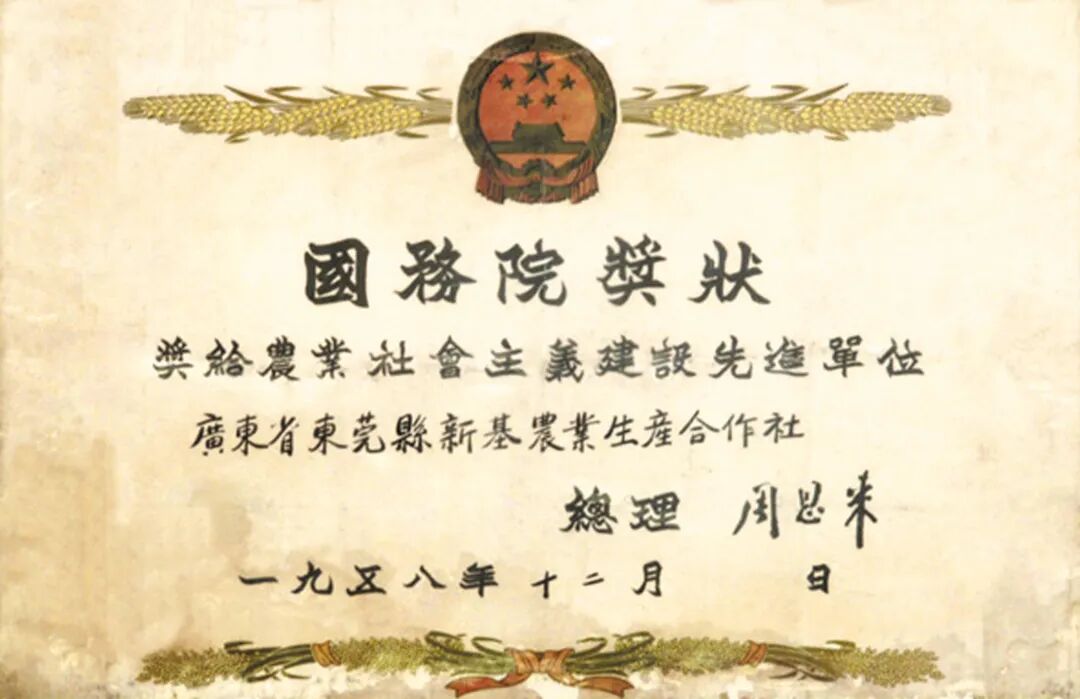 國務院獎狀
獎給農業社會主義建設先進單位
廣東省東莞縣新基農業生產合作社
總理 周恩来
一九五八年 十二月 日